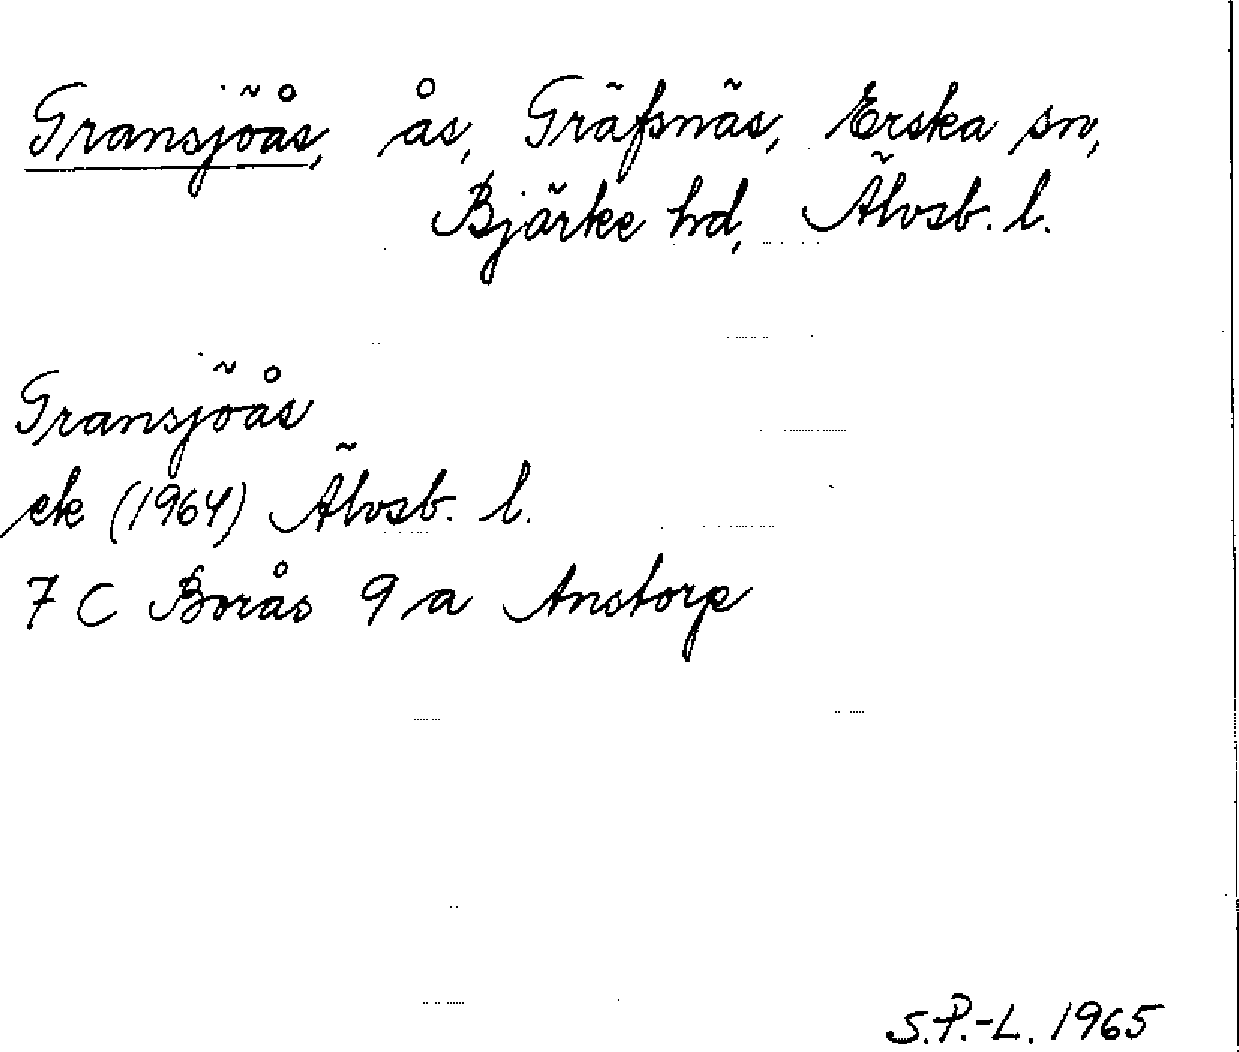 Gransjöås, ås, Gräfsnäs, Erska sn,
Bjärke hd, Älvsb. l.
Gransjöås
ek (1964) Älvsb. l.
7 C Borås 9 a Anstorp
S.P.-L. 1965